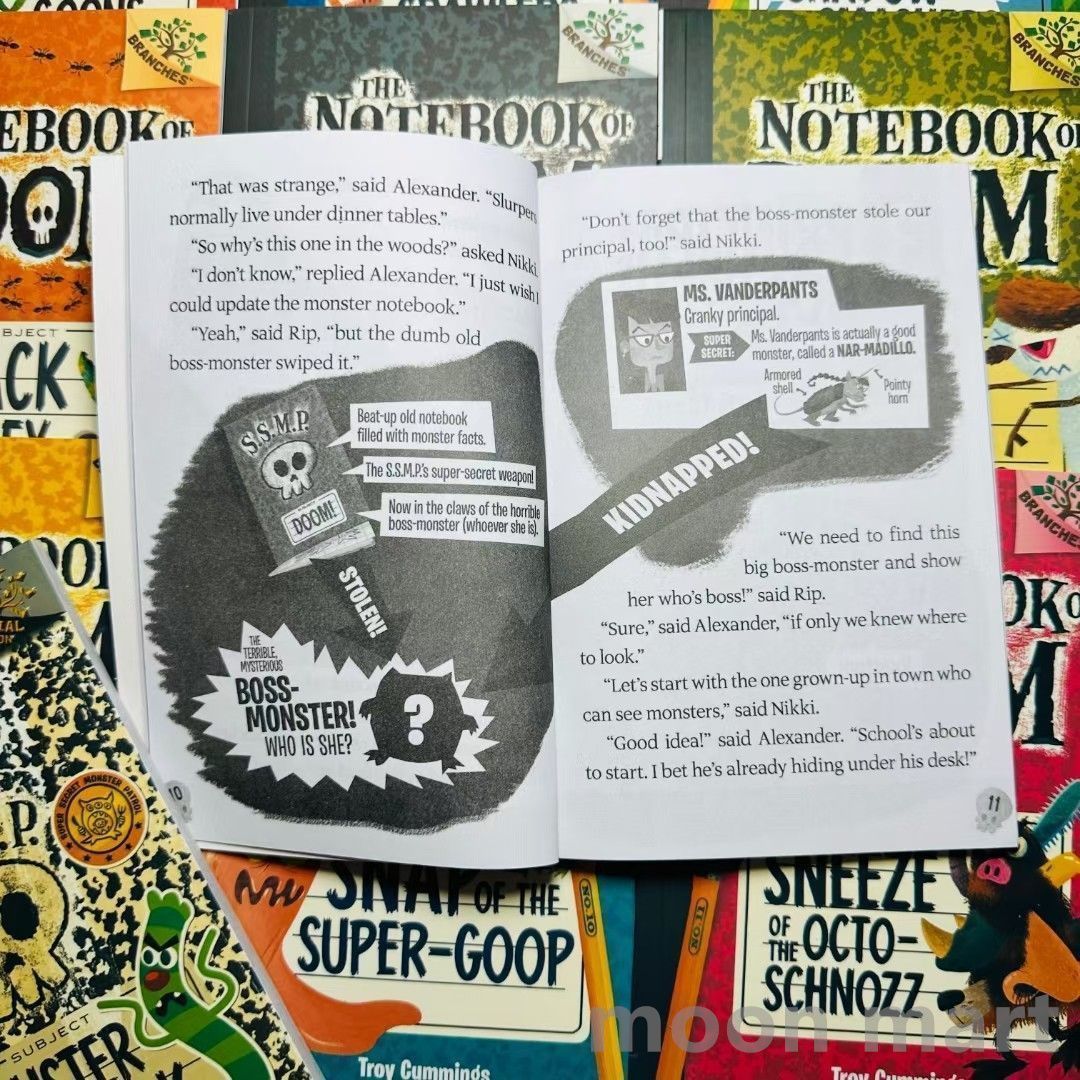 GOONS
SHADOW
BRANCHES™
EBOOK OF
DOOM
THE
NOTEBOOK OF
BRANCHES™
THE
NOTEBOOK OF
BRANCHES
“That was strange,” said Alexander. “Slurpers
normally live under dinner tables.”
“So why’s this one in the woods?” asked Nikki.
“I don’t know,” replied Alexander. “I just wish I
could update the monster notebook.”
“Yeah,” said Rip, “but the dumb old
boss-monster swiped it.”
S.S.M.P.
DOOM!
Beat-up old notebook
filled with monster facts.
The S.S.M.P.’s super-secret weapon!
Now in the claws of the horrible
boss-monster (whoever she is).
STOLEN!
THE
TERRIBLE,
MYSTERIOUS
BOSS-
MONSTER!
WHO IS SHE?
?
10
“Don’t forget that the boss-monster stole our
principal, too!” said Nikki.
MS. VANDERPANTS
Cranky principal.
SUPER
SECRET:
Ms. Vanderpants is actually a good
monster, called a NAR-MADILLO.
Armored
shell
Pointy
horn
KIDNAPPED!
“We need to find this
big boss-monster and show
her who’s boss!” said Rip.
“Sure,” said Alexander, “if only we knew where
to look.”
“Let’s start with the one grown-up in town who
can see monsters,” said Nikki.
“Good idea!” said Alexander. “School’s about
to start. I bet he’s already hiding under his desk!”
11
BRANCHES
SUPER SECRET MONSTER PATROL
P.
SUBJECT
SNAP OF THE
SUPER-GOOP
NO.10
Troy Cummings
NO.11
SNEEZE
OF
THE OCTO-
SCHNOZZ
Troy Cummings
moon mart